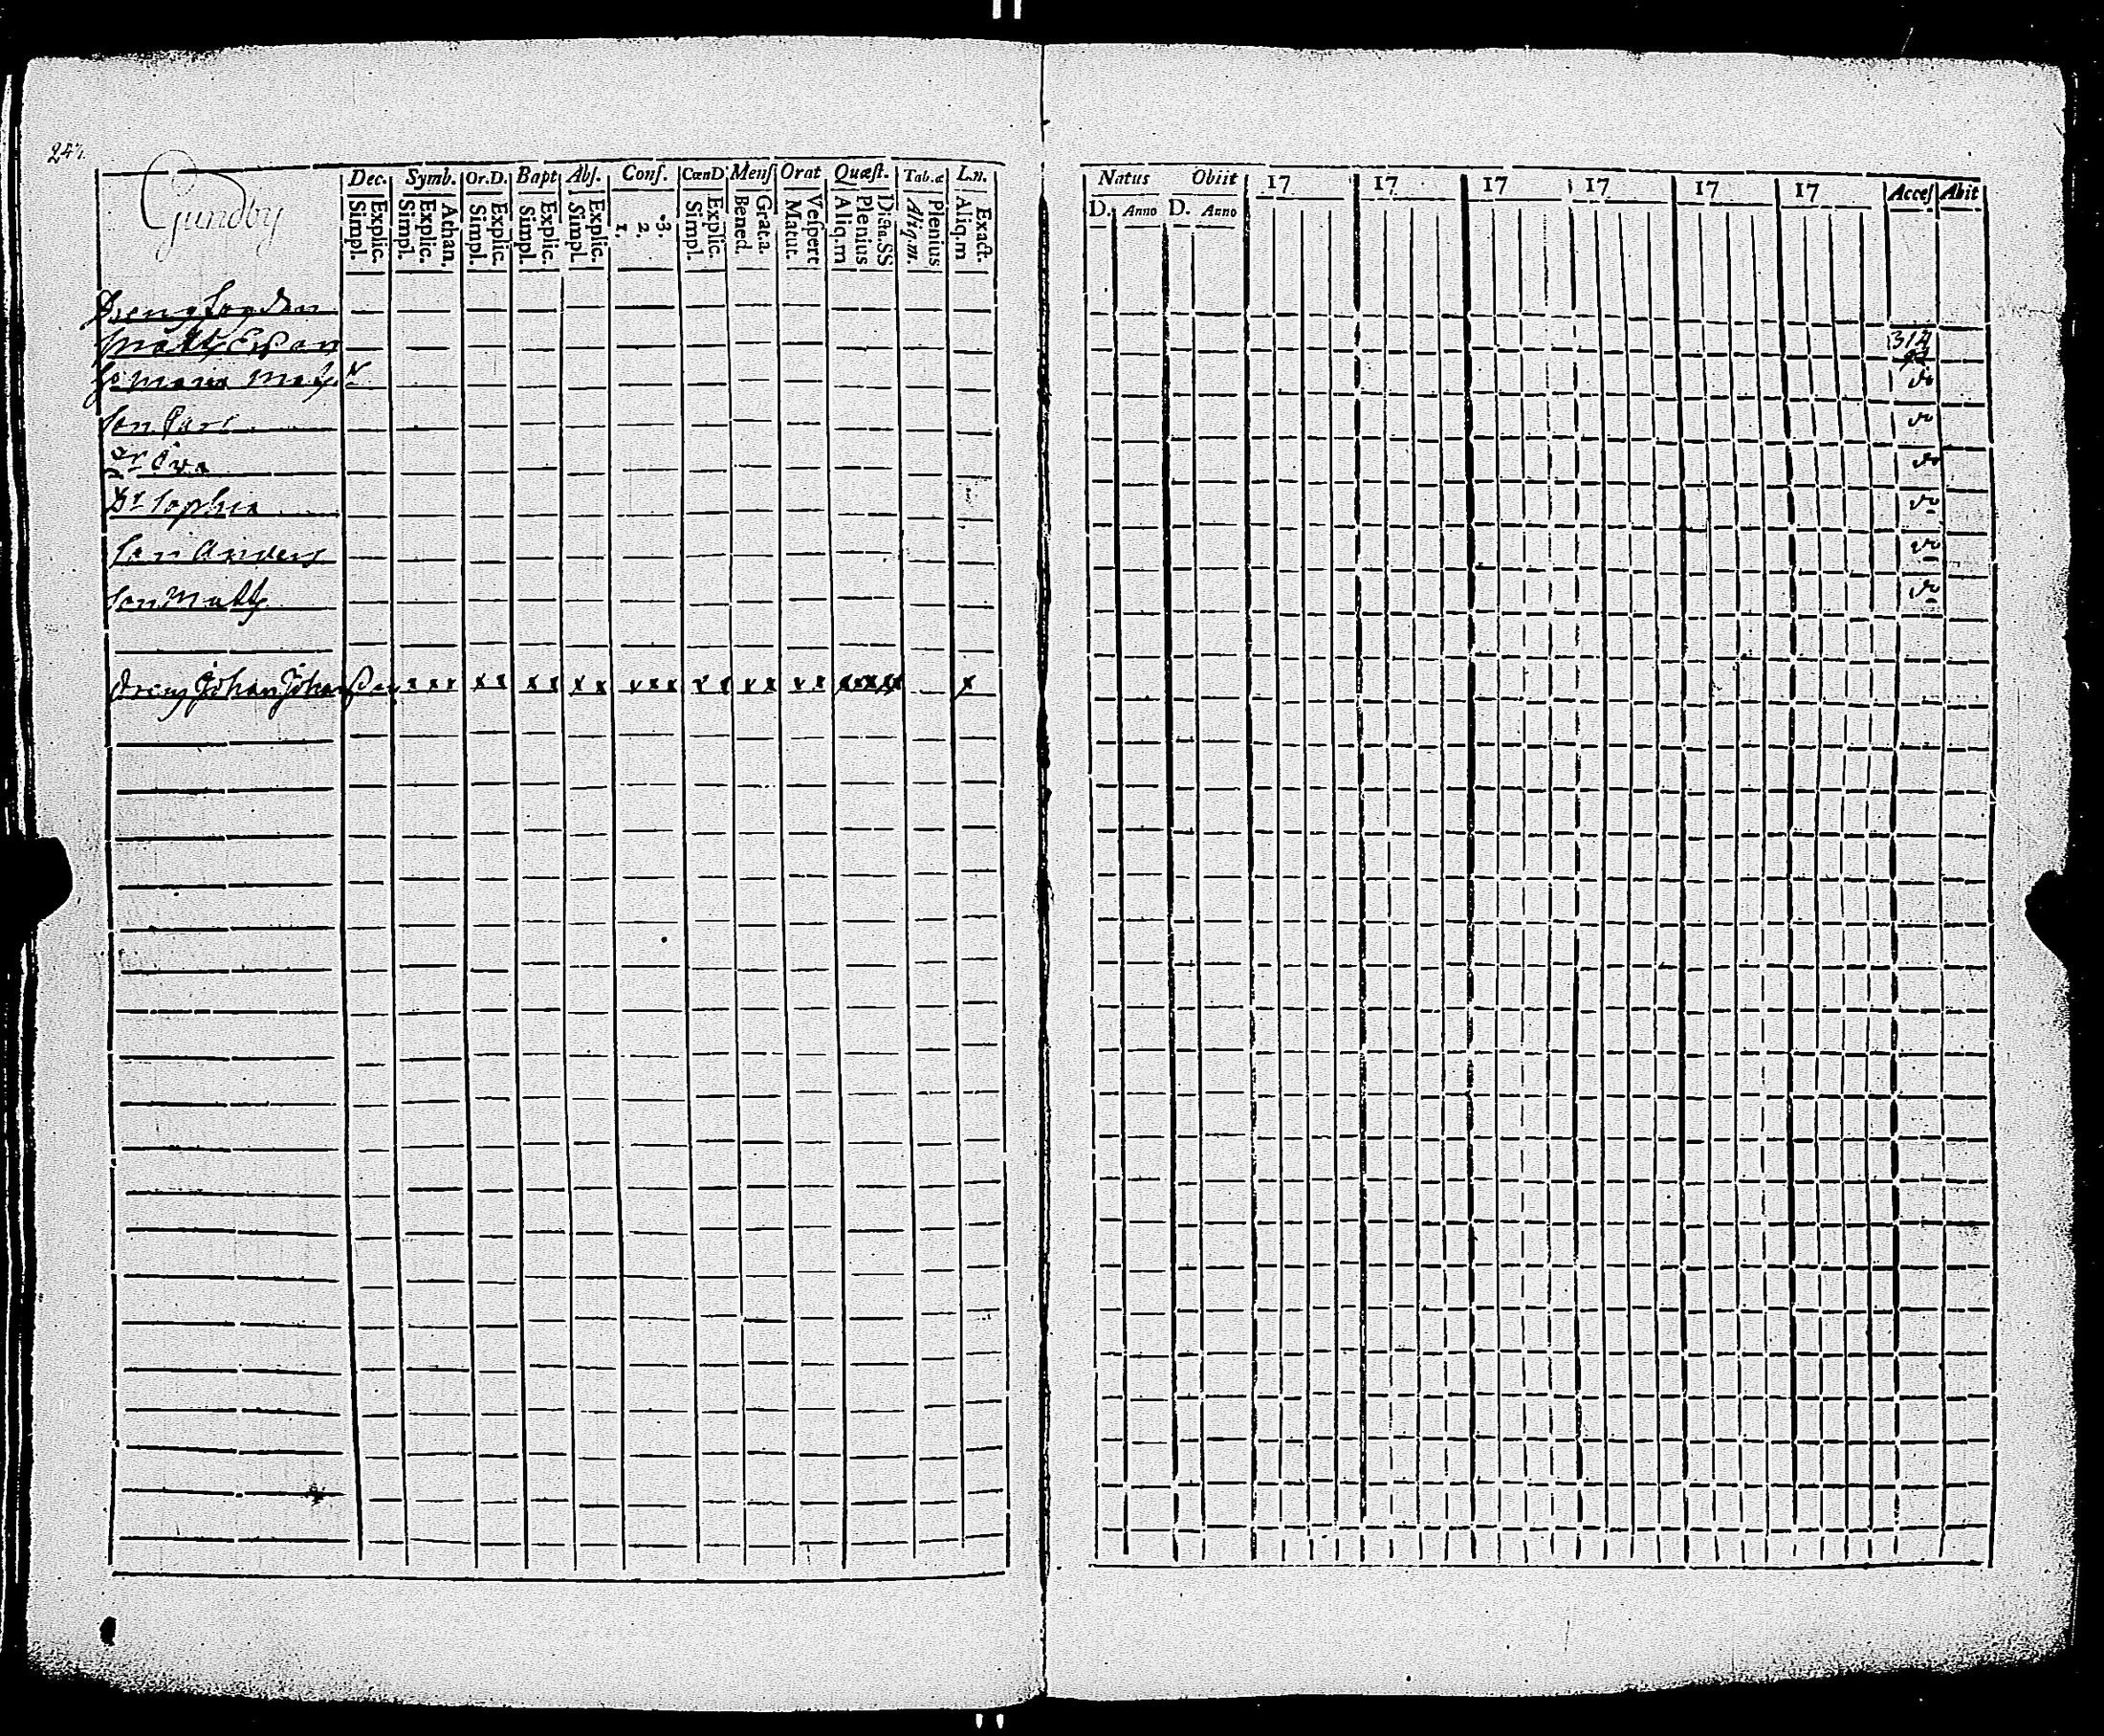 Gundby
Dec. Symb. Or.D. Bapt Abs. Conf. CœnD Mens Orat Quæst. Tab.œ L.n.
Simpl. Explic. Simpl. Explic. Athan. Simpl. Explic. Simpl. Explic. Simpl. Explic. 1. 2. 3. Simpl. Explic. Bened. Grat.a. Matut. Vespert Aliq.m Plenius Dicta.SS Aliq.m. Plenius Aliq.m Exact.
Matts
Maria Mats
Son Pars
Dr Eva
Dr Sophia
Son Anders
Son Matts
Dreng Johan Johansson x x x x x x x x x x x x x x x x x x x x x x x
Natus Obiit 17 17 17 17 17 17 Acces Abit
D. Anno D. Anno
314
do
do
do
do
do
do